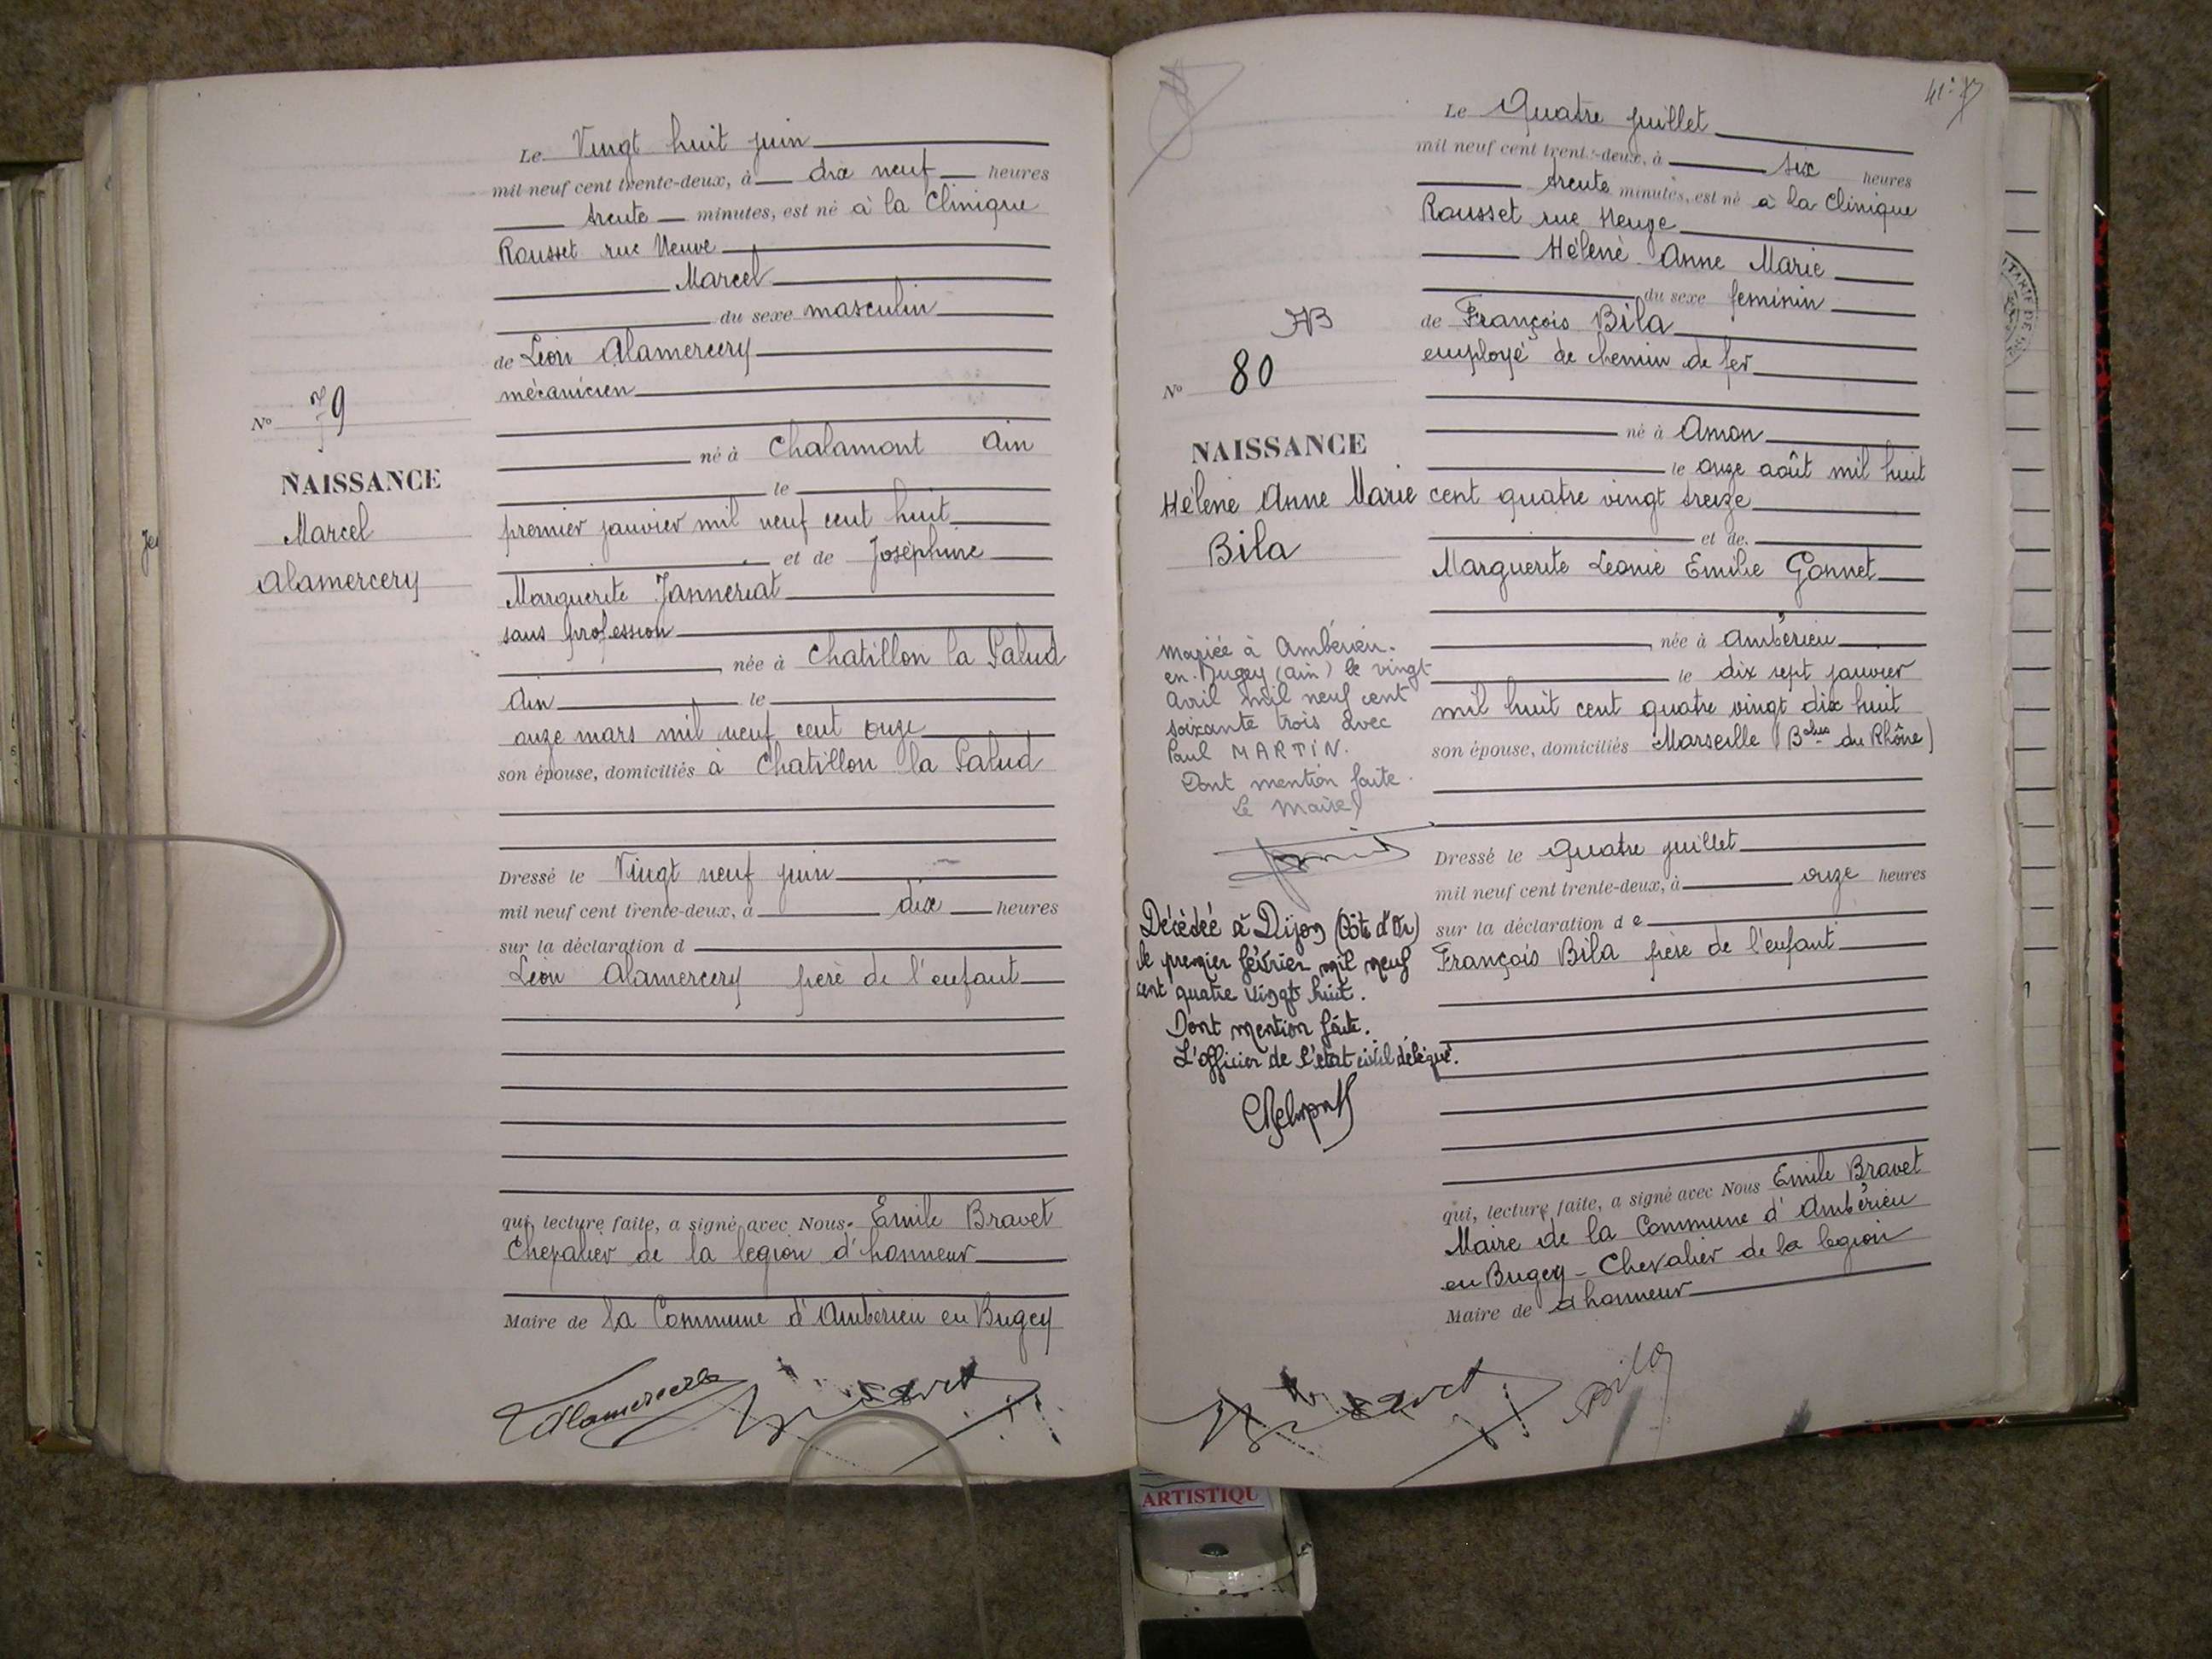 Le Vingt huit juin
mil neuf cent trente-deux, à dix neuf heures
trente minutes, est né à la Clinique
Rousset rue Neuve
Marcel
du sexe masculin
de Léon Alamercery
mécanicien
N° 79
né à Chalamont Ain
NAISSANCE
le
Marcel
premier janvier mil neuf cent huit
Alamercery
et de Joséphine
Marguerite Janneriat
sans profession
née à Chatillon la Palud
Ain le
onze mars mil neuf cent onze
son épouse, domiciliés à Chatillon la Palud
Dressé le Vingt neuf juin
mil neuf cent trente-deux, à dix heures
sur la déclaration d
Léon Alamercery père de l'enfant
qui, lecture faite, a signé avec Nous Emile Bravet
Chevalier de la legion d'honneur
Maire de la Commune d'Ambérieu en Bugey
Alamercery
Bravet
Le Quatre juillet
mil neuf cent trente-deux, à six heures
trente minutes, est né à la Clinique
Rousset rue Neuve
Hélène Anne Marie
du sexe feminin
de François Bila
employé de chemin de fer
N° 80
né à Amon
NAISSANCE
le onze août mil huit
Hélène Anne Marie
cent quatre vingt treize
Bila
et de
Marguerite Léonie Emilie Gonnet
née à Ambérieu
le dix sept janvier
mil huit cent quatre vingt dix huit
son épouse, domiciliés Marseille (Bches du Rhône)
mariée à Ambérieu.
en-Bugey (Ain) le vingt
avril mil neuf cent
soixante trois avec
Paul MARTIN.
Dont mention faite.
Le Maire
Décédée à Dijon (Côte d'Or)
le premier février mil neuf
cent quatre vingt huit.
Dont mention faite.
L'officier de l'état civil délégué.
Dressé le Quatre juillet
mil neuf cent trente-deux, à onze heures
sur la déclaration de
François Bila père de l'enfant
qui, lecture faite, a signé avec Nous Emile Bravet
Maire de la Commune d'Ambérieu
en Bugey - Chevalier de la legion
Maire de d'honneur
Bravet
Bila
ARTISTIQU